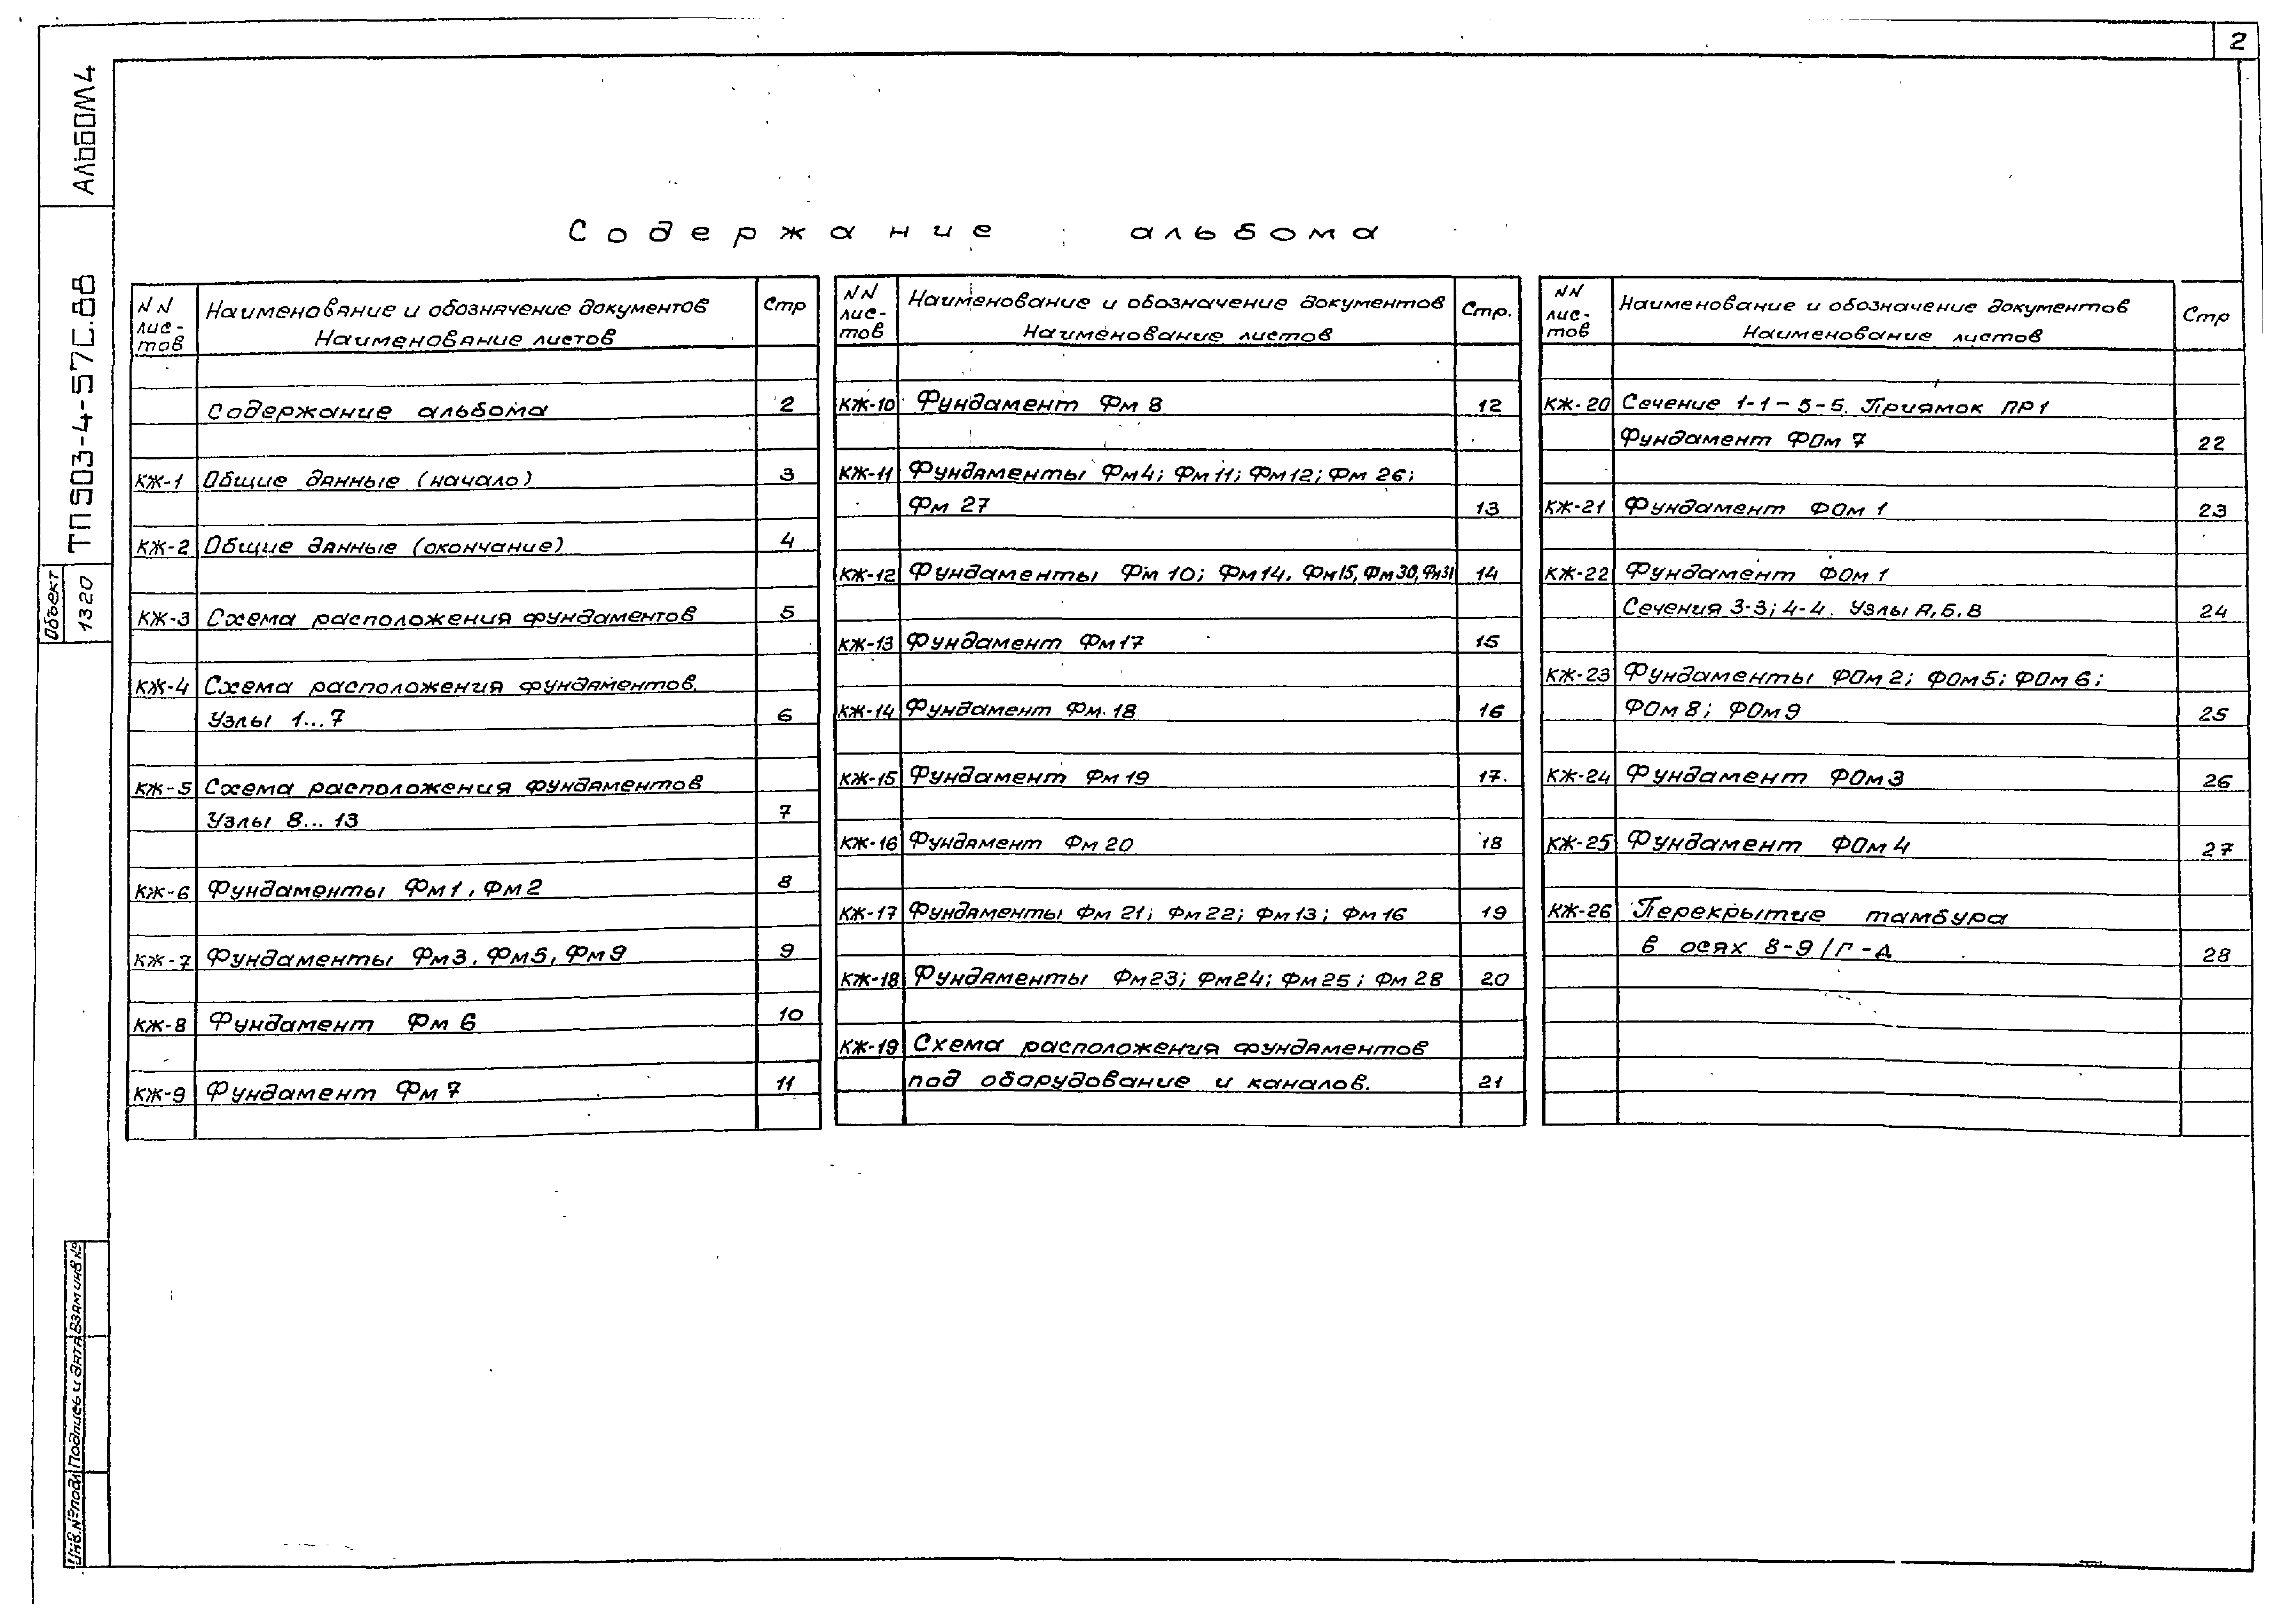 2
Альбом 4
ТП 503-4-57С.88
Объект
1320
Содержание альбома
NN лис-тов
Наименование и обозначение документов
Наименование листов
Стр
Содержание альбома 2
КЖ-1 Общие данные (начало) 3
КЖ-2 Общие данные (окончание) 4
КЖ-3 Схема расположения фундаментов 5
КЖ-4 Схема расположения фундаментов.
Узлы 1...7 6
КЖ-5 Схема расположения фундаментов
Узлы 8...13 7
КЖ-6 Фундаменты Фм1, Фм2 8
КЖ-7 Фундаменты Фм3, Фм5, Фм9 9
КЖ-8 Фундамент Фм 6 10
КЖ-9 Фундамент Фм 7 11
NN лис-тов
Наименование и обозначение документов
Наименование листов
Стр.
КЖ-10 Фундамент Фм 8 12
КЖ-11 Фундаменты Фм4; Фм11; Фм12; Фм 26;
Фм 27 13
КЖ-12 Фундаменты Фм 10; Фм14, Фм15, Фм30, Фм31 14
КЖ-13 Фундамент Фм17 15
КЖ-14 Фундамент Фм. 18 16
КЖ-15 Фундамент Фм 19 17.
КЖ-16 Фундамент Фм 20 18
КЖ-17 Фундаменты Фм 21; Фм 22; Фм 13; Фм 16 19
КЖ-18 Фундаменты Фм23; Фм24; Фм 25; Фм 28 20
КЖ-19 Схема расположения фундаментов
под оборудование и каналов. 21
NN лис-тов
Наименование и обозначение документов
Наименование листов
Стр
КЖ-20 Сечение 1-1 - 5-5. Приямок ПР1
Фундамент ФОм 7 22
КЖ-21 Фундамент ФОм 1 23
КЖ-22 Фундамент ФОм 1
Сечения 3-3; 4-4. Узлы А, Б, В 24
КЖ-23 Фундаменты ФОм 2; ФОм5; ФОм 6;
ФОм 8; ФОм 9 25
КЖ-24 Фундамент ФОм3 26
КЖ-25 Фундамент ФОм 4 27
КЖ-26 Перекрытие тамбура
в осях 8-9/Г-Д 28
Инв. № подл
Подпись и дата
Взам инв №